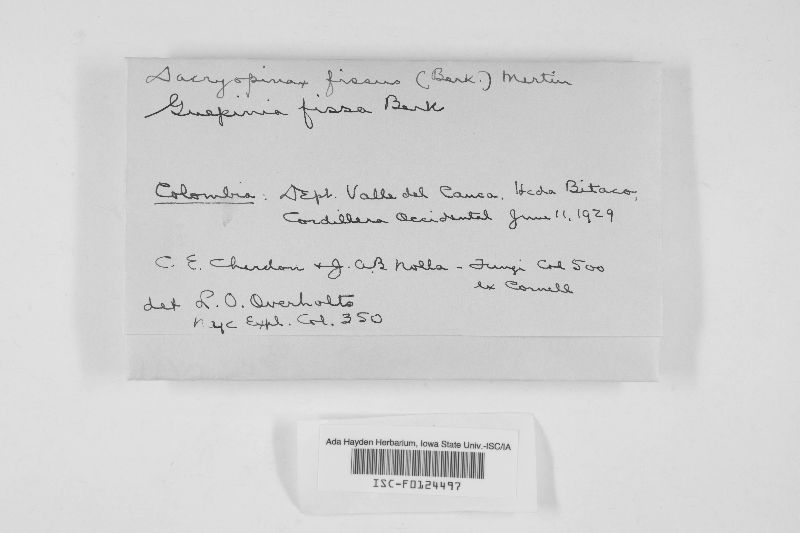 Dacryopinax fissus (Berk.) Martin
Guepinia fissa Berk
Colombia: Dept. Valle del Cauca, Hcda Bitaco,
Cordillera Occidental June 11, 1929
C. E. Chardon & J. A. B. Nolla - Fungi Col 500
ex Cornell
det L. O. Overholts
Myc Expl. Col. 350
Ada Hayden Herbarium, Iowa State Univ.-ISC/IA
ISC-F0124497